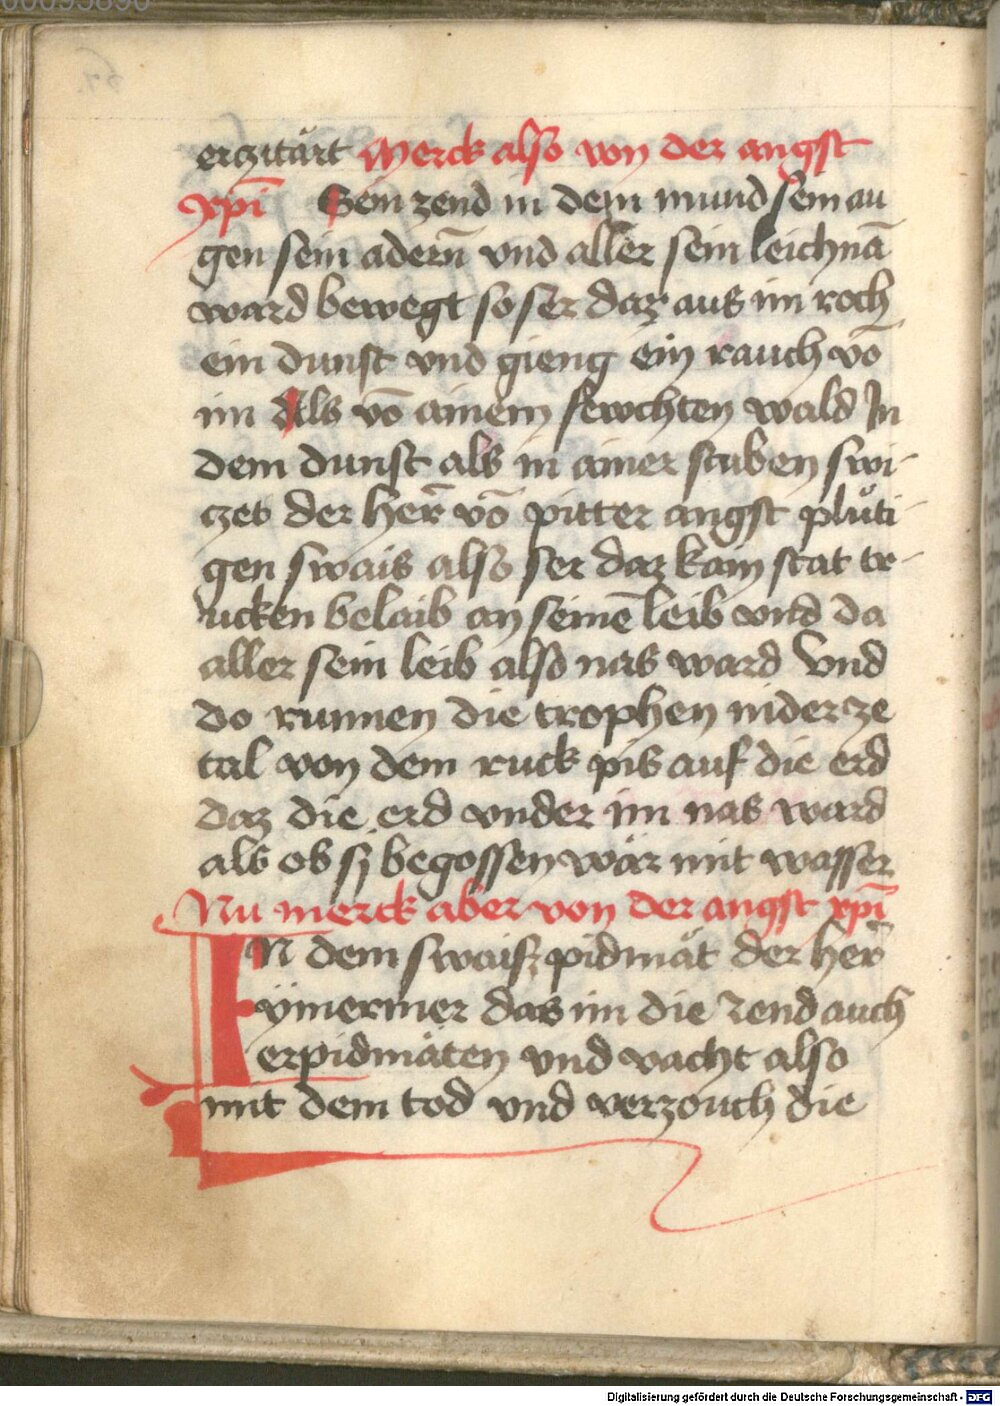 erczitärt Merck also von der angst
xp̄i Sein zend in dem mund sein au
gen sein adern̄ vnd aller sein leichnā
ward bewegt so ser daz aus im roch
ein dunst vnd gieng ein rauch vō
im Als vō ainem fewchten wald In
dem dunst als in ainer stuben swi-
czet der her̄ vō pitter angst plůti-
gen swais also ser daz kain stat tr-
ucken belaib an seinē leib vnd da
aller sein leib also nas ward Vnd
do runnen die trophen nider ze
tal von dem ruck pis auf die erd
daz die erd vnder im nas ward
als ob sy begossen wär mit wasser
Nu merck aber von der angst xp̄i
IN dem swaisz pidmät der her̄
ymermer das im die zend auch
erpidmäten vnd vacht also
mit dem tod vnd verzouch die
Digitalisierung gefördert durch die Deutsche Forschungsgemeinschaft - DFG